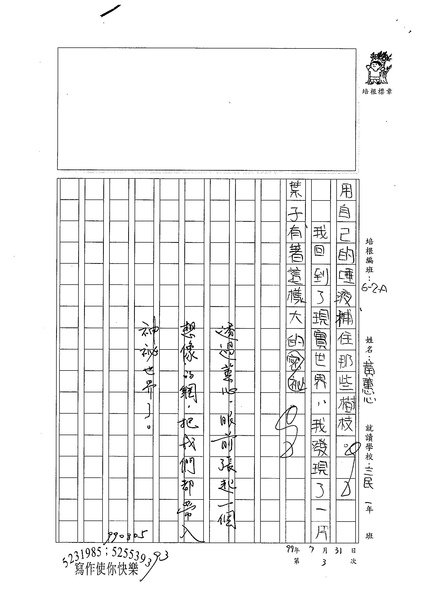 培根標章
培根編班：6-2-A
姓名：黃蕙心
就讀學校：三民
1年 班
用自己的唾液補住那些樹枝。
我回到了現實世界，我發現了一片
葉子有著這樣大的
透過蕙心，眼前張起一個
想像的網，把我們都帶入
神祕世界了。
99年7月31日
第3次
990805
5231985；52553993
寫作使你快樂